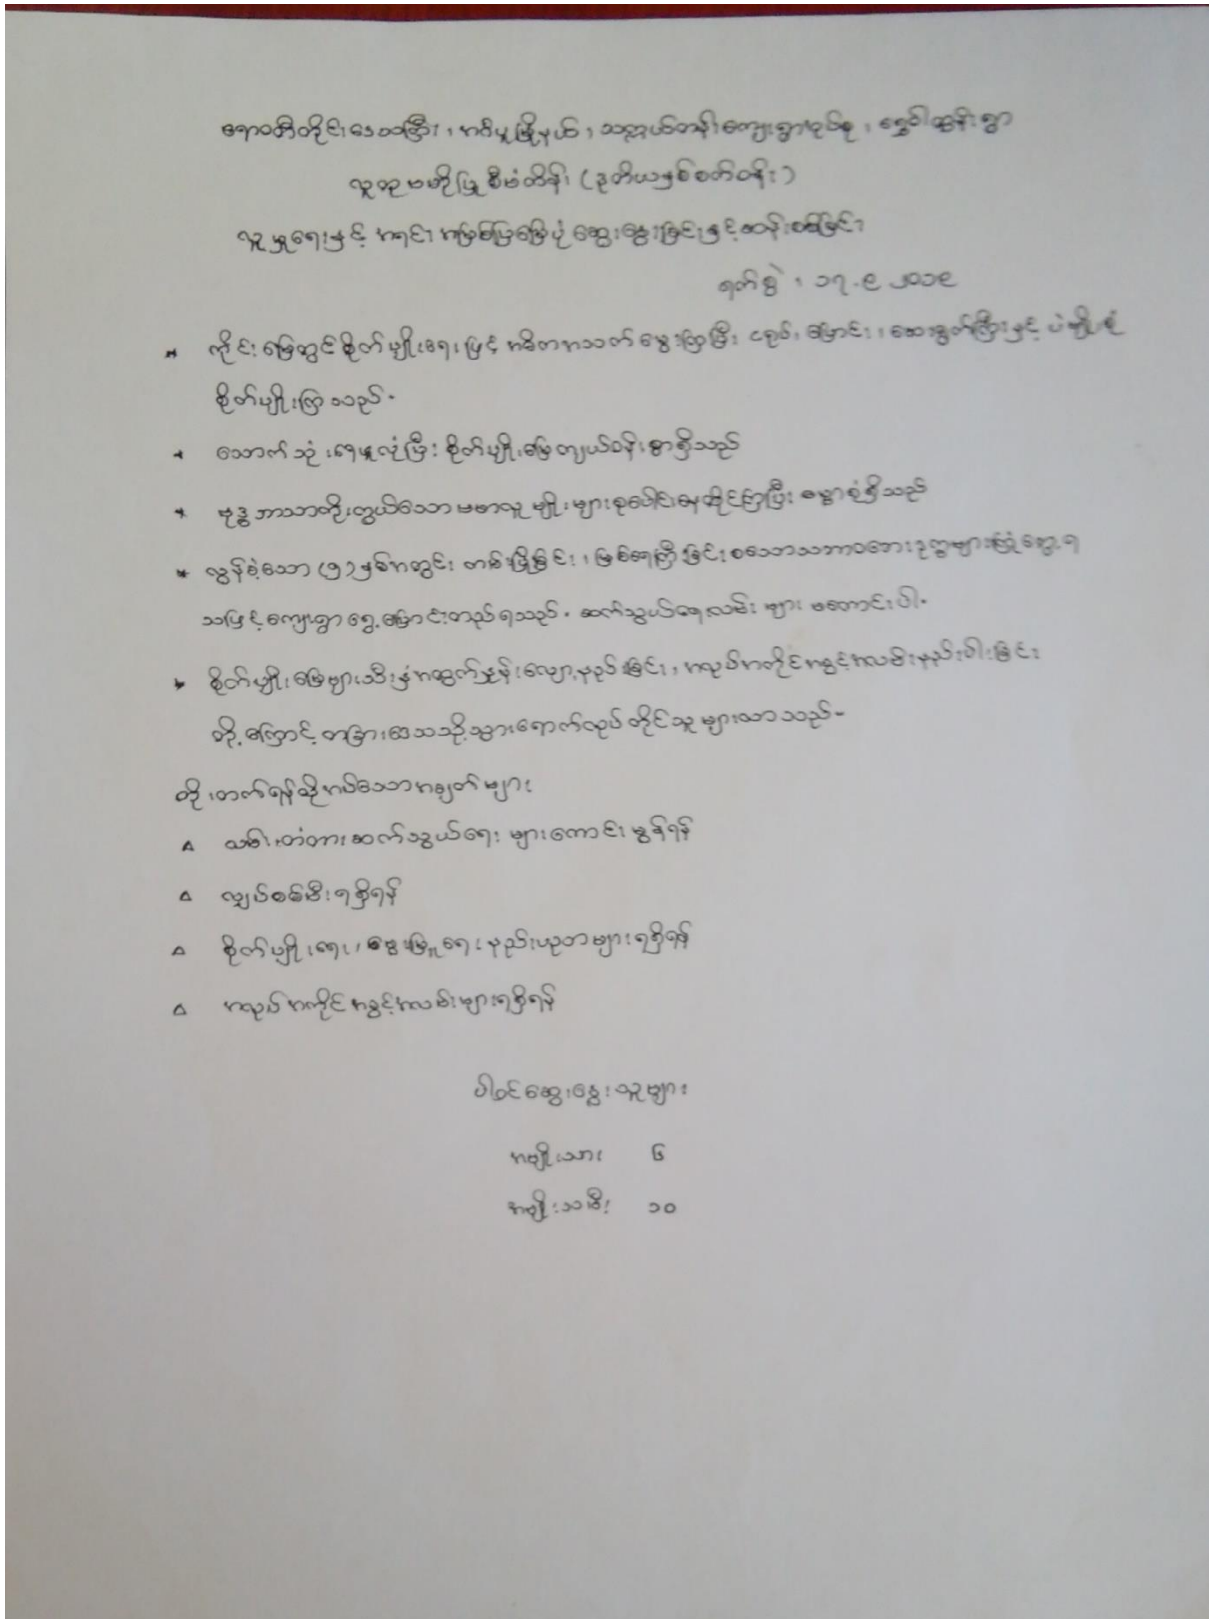 ဧရာဝတီတိုင်းဒေသကြီး ၊ ဇလွန်မြို့နယ် ၊ သက္ကယ်တန်းကျေးရွာအုပ်စု ၊ ရွှေဝါထွန်းရွာ
လူထုဗဟိုပြုစီမံကိန်း (ဒုတိယနှစ်စက်ဝန်း)
လူမှုရေးနှင့် အရင်းအမြစ်ပြမြေပုံ ဆွေးနွေးခြင်းနှင့်ဆန်းစစ်ခြင်း
ရက်စွဲ ၊ ၁၇.၉ ၂၀၁၉
* ကိုင်းမြေတွင်စိုက်ပျိုးရေးဖြင့် အဓိကအသက်မွေးကြပြီး ငရုတ်၊ ပြောင်း ၊ ဆေးရွက်ကြီးနှင့် ပဲမျိုးစုံ
စိုက်ပျိုးကြသည်။
* သောက်သုံးရေဖူလုံပြီး စိုက်ပျိုးမြေကျယ်ဝန်းစွာရှိသည်
* ဗုဒ္ဓဘာသာကိုးကွယ်သော ဗမာလူမျိုးများစုပေါင်းနေထိုင်ကြပြီး ဓမ္မာရုံရှိသည်
* လွန်ခဲ့သော (၅)နှစ်အတွင်း ကမ်းပြိုခြင်း ၊ မြစ်ရေကြီးခြင်းစသောသဘာဝဘေးဒုက္ခများကြုံတွေ့ရ
သဖြင့်ကျေးရွာရွှေ့ပြောင်းတည်ရသည်။ ဆက်သွယ်ရေးလမ်း များ မကောင်းပါ။
* စိုက်ပျိုးမြေများသီးနှံအထွက်နှုန်းလျော့နည်းခြင်း ၊ အလုပ်အကိုင်အခွင့်အလမ်းနည်းပါးခြင်း
တို့ကြောင့် တခြားဒေသသို့သွားရောက်လုပ်ကိုင်သူများလာသည်။
တိုးတက်ရန်လိုအပ်သောအချက်များ
△ လမ်း၊တံတားဆက်သွယ်ရေး များကောင်းမွန်ရန်
△ လျှပ်စစ်မီးရရှိရန်
△ စိုက်ပျိုးရေး၊ မွေးမြူရေးနည်းပညာများရရှိရန်
△ အလုပ်အကိုင်အခွင့်အလမ်းများရရှိရန်
ပါဝင်ဆွေးနွေးသူများ
အမျိုးသား ၆
အမျိုးသမီး ၁၀